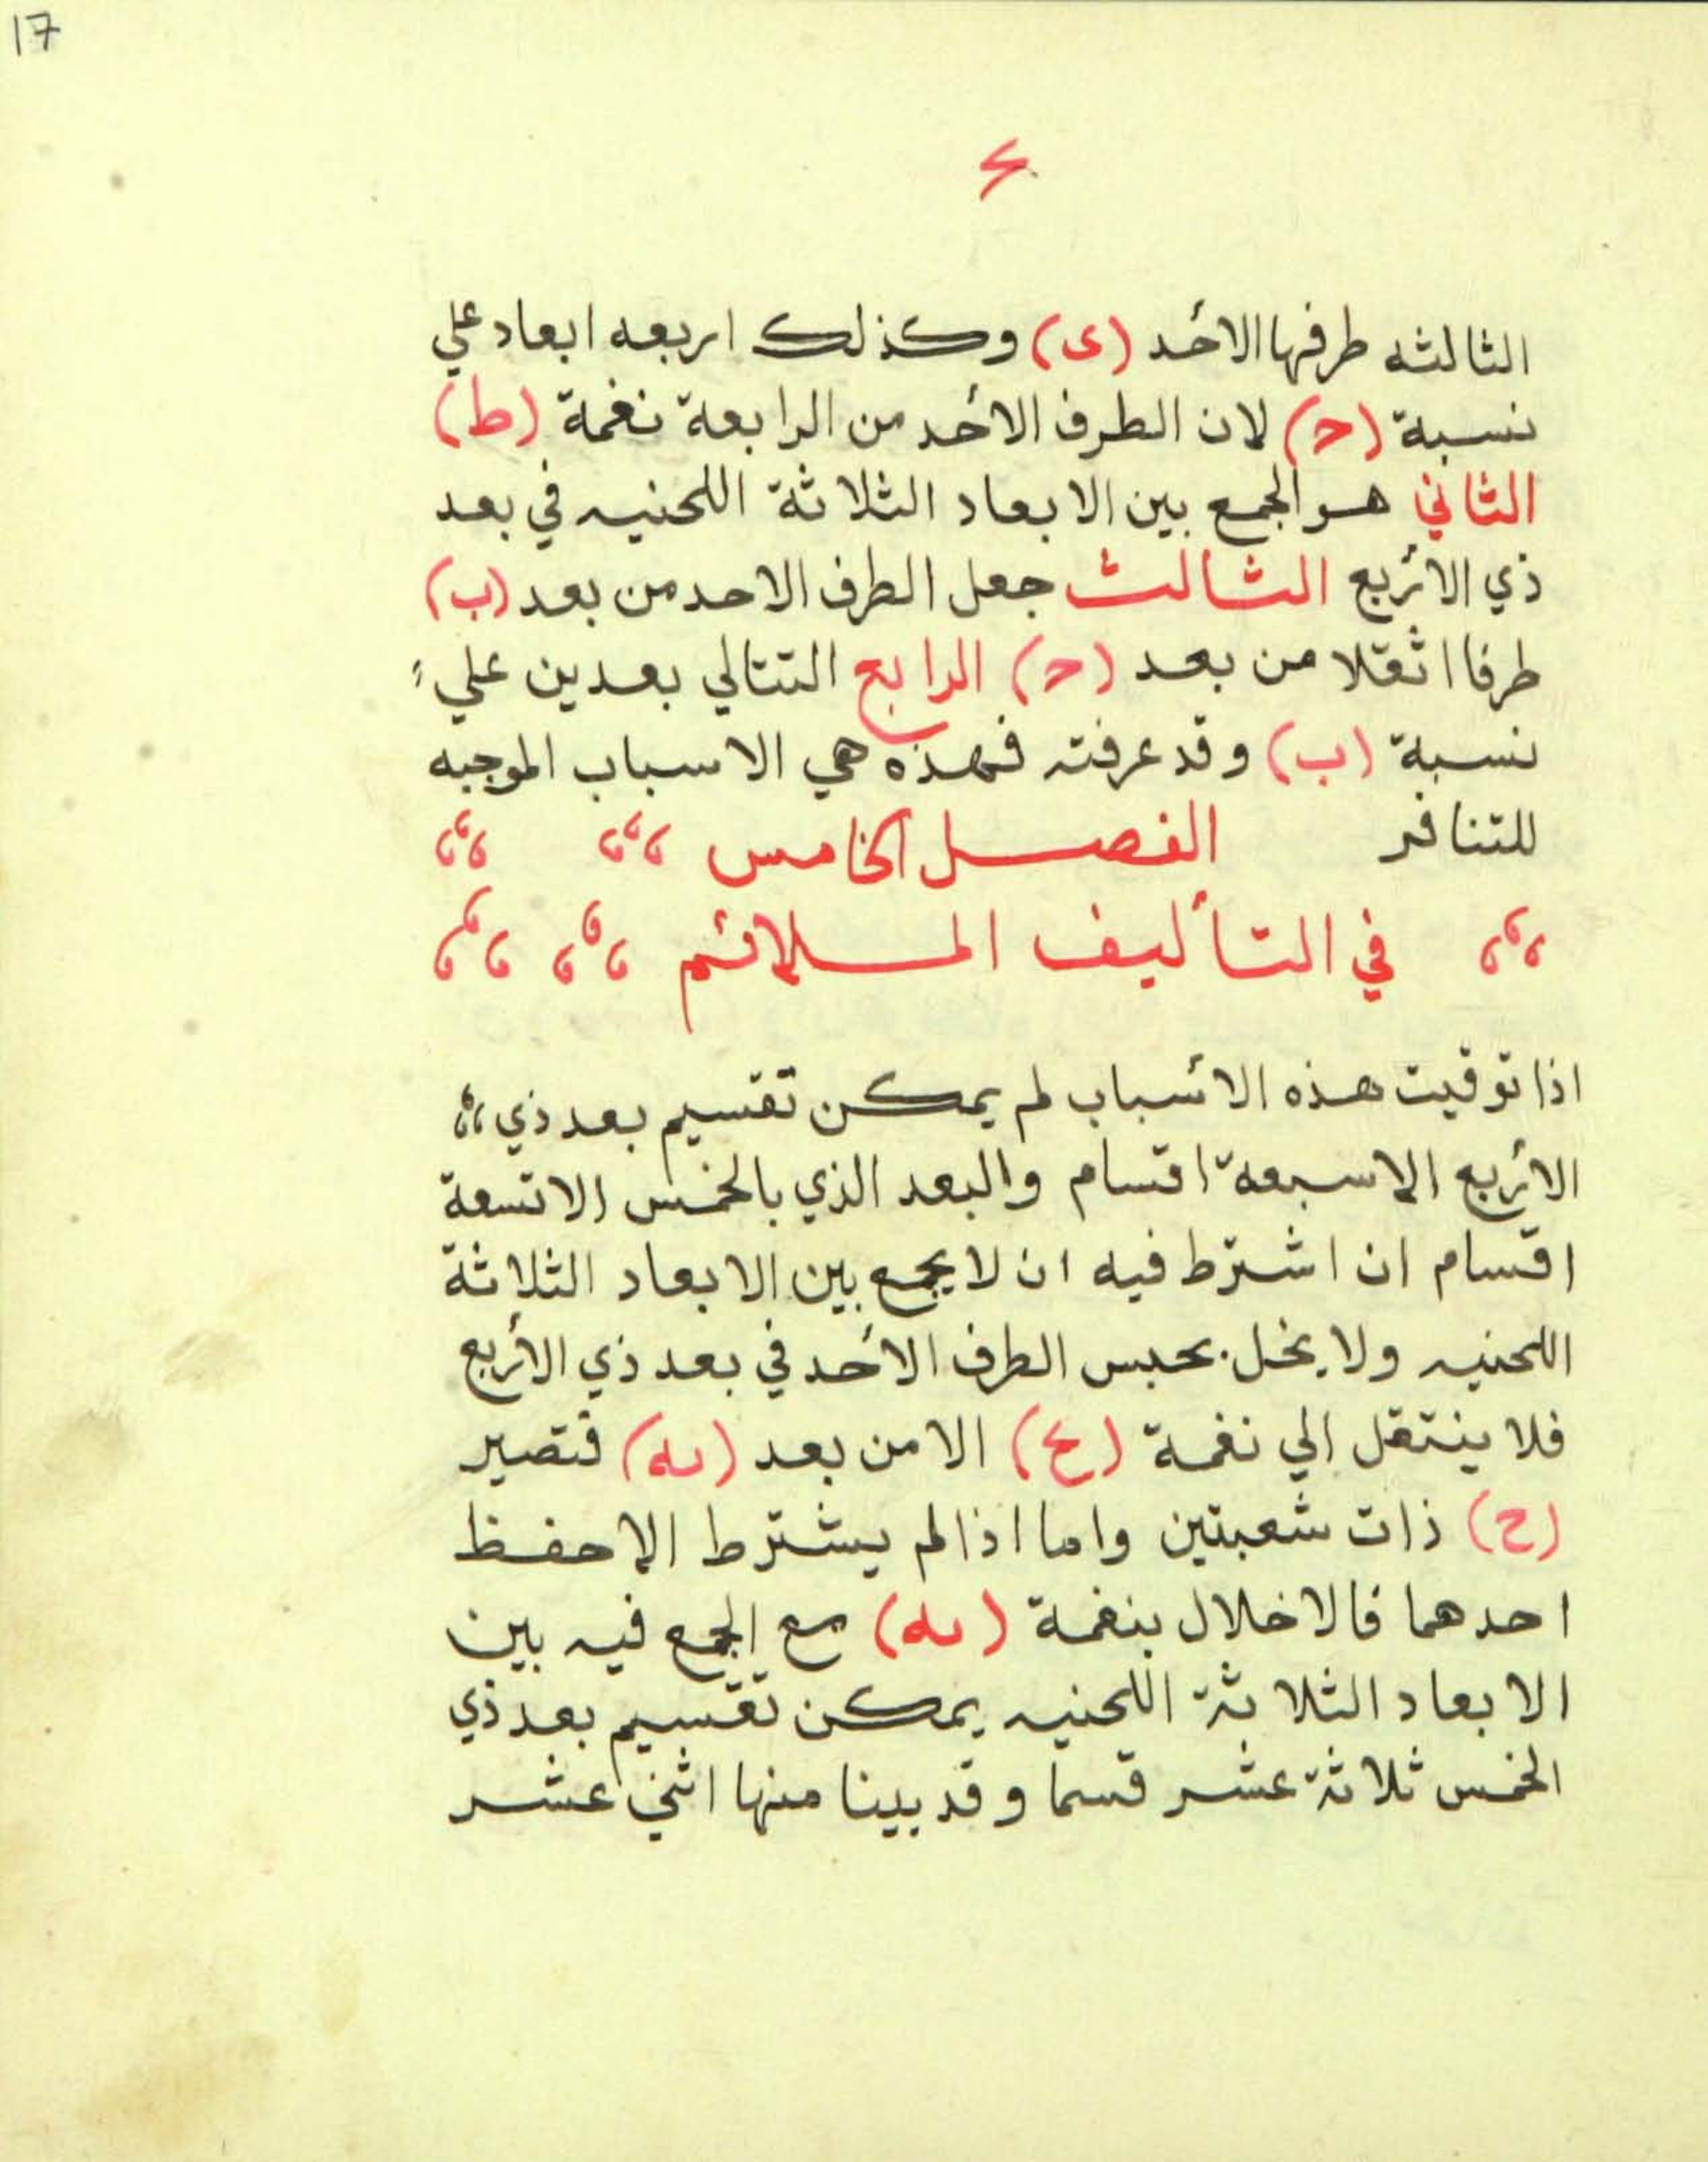 17
٤
الثالثه طرفها الأحد (ى) وكذلك اربعه ابعاد علي
نسبة (ج) لان الطرف الأحد من الرابعة نغمة (ط)
الثاني هو الجمع بين الابعاد الثلاثة اللحنيه في بعد
ذي الأربع الثالث جعل الطرف الاحد من بعد (ب)
طرفا اثقلا من بعد (ج) الرابع التتالي بعدين علي
نسبة (ب) وقد عرفته فهذه هي الاسباب الموجبه
للتنافر الفصل الخامس
في التأليف الملائم
اذا توقيت هذه الأسباب لم يمكن تقسيم بعد ذي
الأربع الا سبعة اقسام والبعد الذي بالخمس الا تسعة
اقسام ان اشترط فيه ان لا يجمع بين الابعاد الثلاثة
اللحنيه ولا يخل بحبس الطرف الأحد في بعد ذي الأربع
فلا ينتقل الي نغمة (ح) الا من بعد (يه) فتصير
(ح) ذات شعبتين واما اذا لم يشترط الا حفظ
احدهما فالاخلال بنغمة (يه) مع الجمع فيه بين
الابعاد الثلاثة اللحنيه يمكن تقسيم بعد ذي
الخمس ثلاثة عشر قسما وقد بينا منها اثني عشر